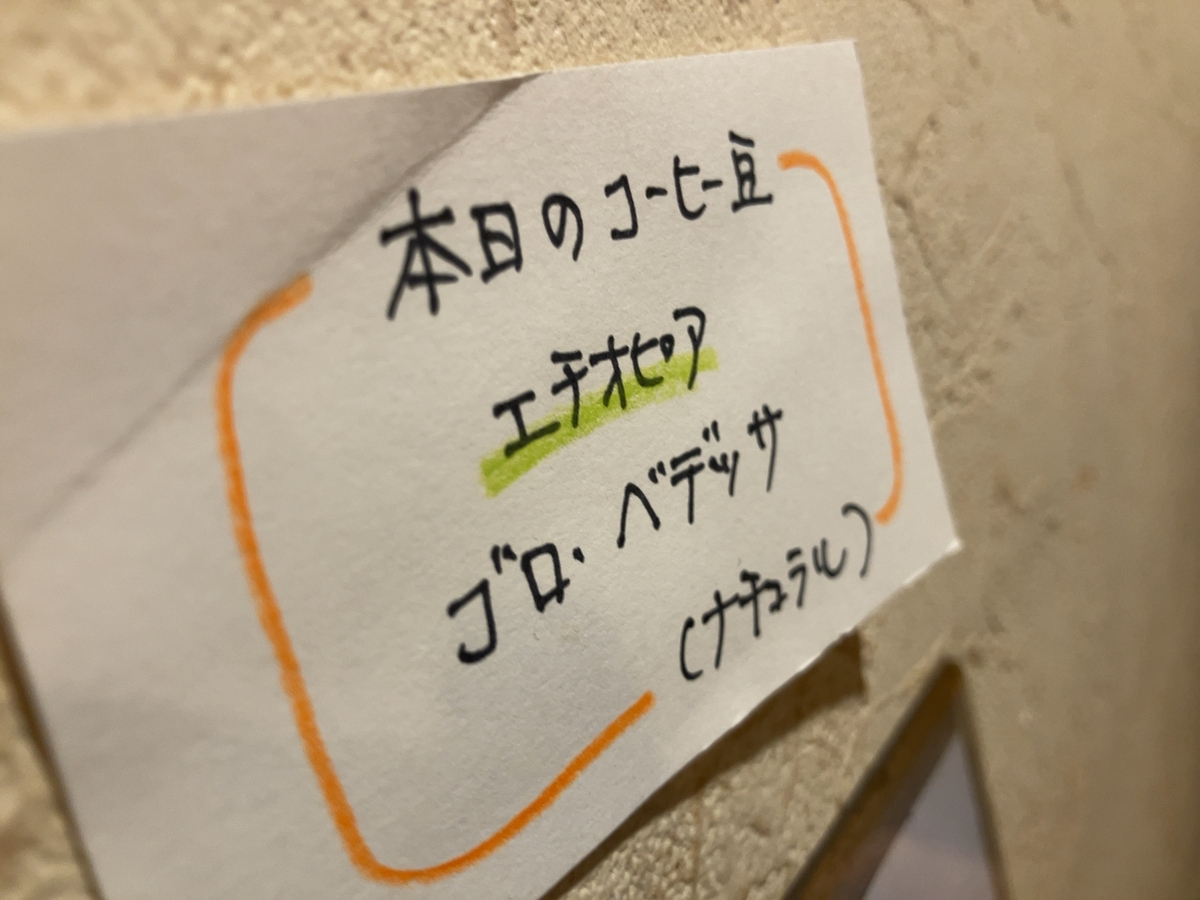 本日のコーヒー豆
エチオピア
ゴロ・ベデッサ
(ナチュラル)